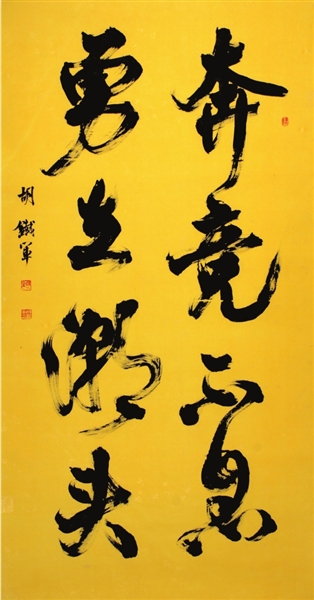 奔竞不息
勇立潮头
胡铁军